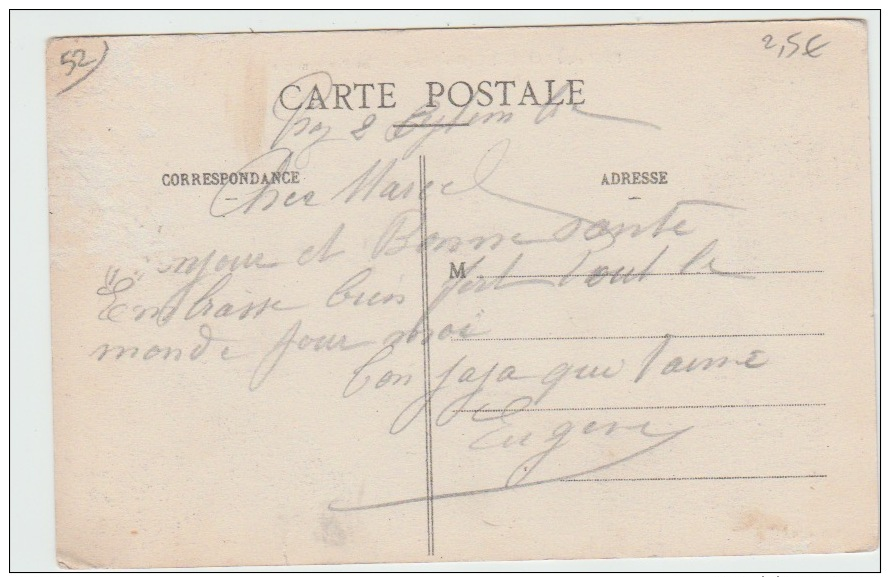 52)
2,5€
CARTE POSTALE
8
CORRESPONDANCE
ADRESSE
Cher Marcel
et Bonne Santé
M
Embrasse bien fort tout le
monde pour moi
Ton que t'aime
Eugene